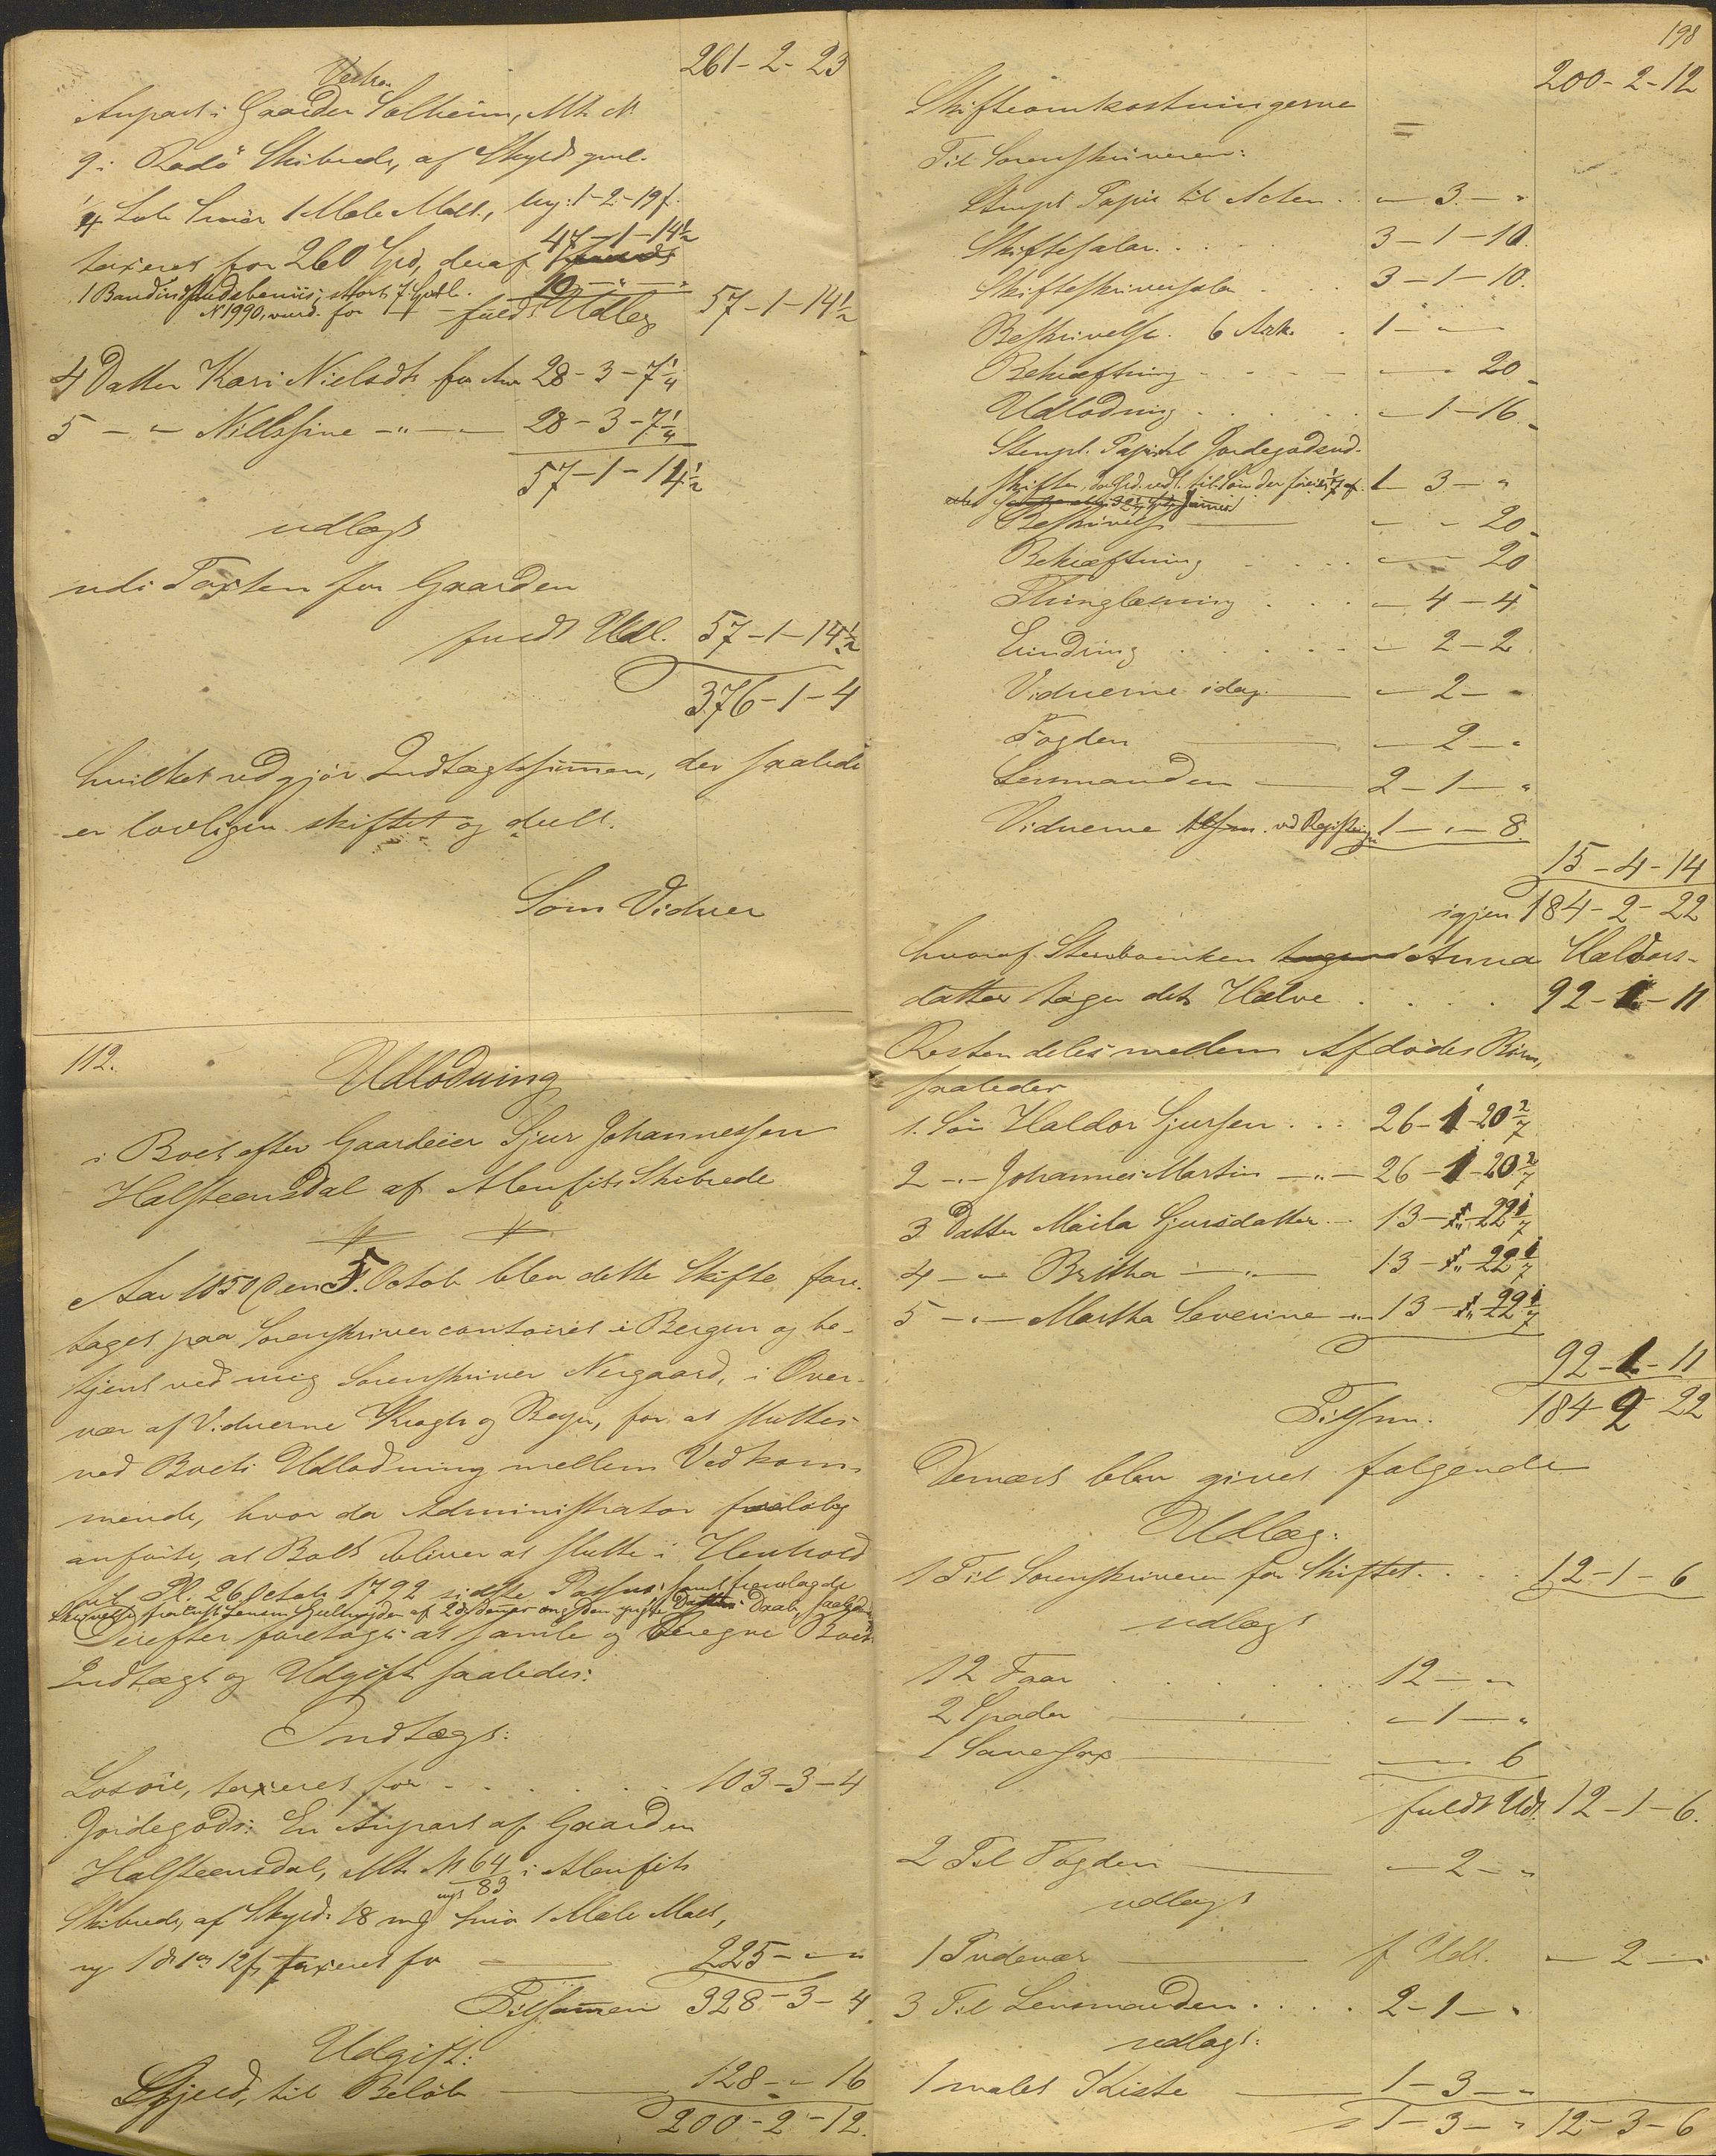 261-2-23
Vestre
Anpart i Gaarden Solheim, Mtr. N.
9 i Radö Skibrede, af Skyld gml.
1/4 Løb Smör 1 Mæle Malt, ny: 1-2-19 f.
taxeret for 260 Spd, deraf 47-1-14½
1 Baandind
N 1990, vurd. for 10-"-"
fuldt Udlæg 57-1-14½
4 Datter Kari Nielsdtr for Arv 28-3-7¼
5 -"- Nillssine -"- 28-3-7¼
57-1-14½
udlagt
udi Taxten for Gaarden
fuldt Udl. 57-1-14½
376-1-4
hvilket udgjör Indtægtssummen, der saalede
er lovligen skiftet og deelt.
Som Vidner
112.
Udlodning
i Boet efter Gaardeier Sjur Johannessen
Halsteensdal af Alenfits Skibrede
Aar 1850 den 5. Octob blev dette Skifte fore-
taget paa Sorenskrivercontoiret i Bergen og be-
tjent ved mig Sorenskriver Nergaard, i Over-
vær af Vidnerne Krogh og Roye, for at sluttes
ved Boets Udlodning mellem Vedkom-
mende, hvor da Administrator foreløbig
anförte, at Boet bliver at slutte i Henhold
til Pl. 26 Octob 1792 sidste Passus, samt fremlagde
Derefter foretoges at samle og beregne Boets
Indtægt og Udgift saaledes:
Indtægt:
Losöre, taxeret for . . . . 103-3-4
Jordegods: En Anpart af Gaarden
Halsteensdal, Mtr. N 64 i Alenfits
nyt 83
Skibrede, af Skyld: 18 mg Smör 1 Mæle Malt,
ny 1 d. 1 ort 12 f, taxeret for 225-"-"
Tilsammen 328-3-4
Udgift:
Gjeld, til Belöb 128-"-16
200-2-12.
198
200-2-12
Skifteomkostningerne
Til Sorenskriveren:
Stempl. Papir til Acten . . "-3-"
Skiftesalar . . . 3-1-10.
Skifteskriversalar . . . 3-1-10.
Beskrivelse. 6 Ark. . 1-"-
Bekræftning . . . "-"-20
Udlodning . . . "-1-16
Stempl. Papir til Jordegodsud-
1-3-"
Beskrivelse "-"-20
Bekræftning . . . "-"-20
Thinglæsning . . . "-4-4
"-2-2
Vidnerne idag "-2-"
Fogden "-2-"
Lensmanden 2-1-"
Vidnerne ved Registeringen 1-"-8.
15-4-14
igjen 184-2-22
hvoraf Sterboenken Anna Haldors-
datter tager det Halve . . . . 92-1-11
Resten deles mellem Afdödes Börn,
saaledes
1. Sön Haldor Sjursen . . . 26-1-20 2/7
2 -"- Johannes Martin -"- 26-1-20 2/7
3 Datter Marta Sjursdatter 13-"-22 1/7
4 -"- Britha -"- 13-"-22 1/7
5 -"- Martha Severine -"- 13-"-22 1/7
92-1-11
Tilsam. 184-2-22
Dernæst blev givet følgende
Udlæg:
1 Til Sorenskriveren for Skiftet . . . . 12-1-6
udlagt
12 Faar . . . . . 12-"-"
2 Spader "-1-"
1 Sauesax "-"-6
fuldt Udl. 12-1-6.
2 Til Fogden "-2-"
udlagt
1 Pudevær f Udl. "-2-"
3 Til Lensmanden . . . . 2-1-"
udlagt:
1 malet Kiste 1-3-"
1-3-" 12-3-6